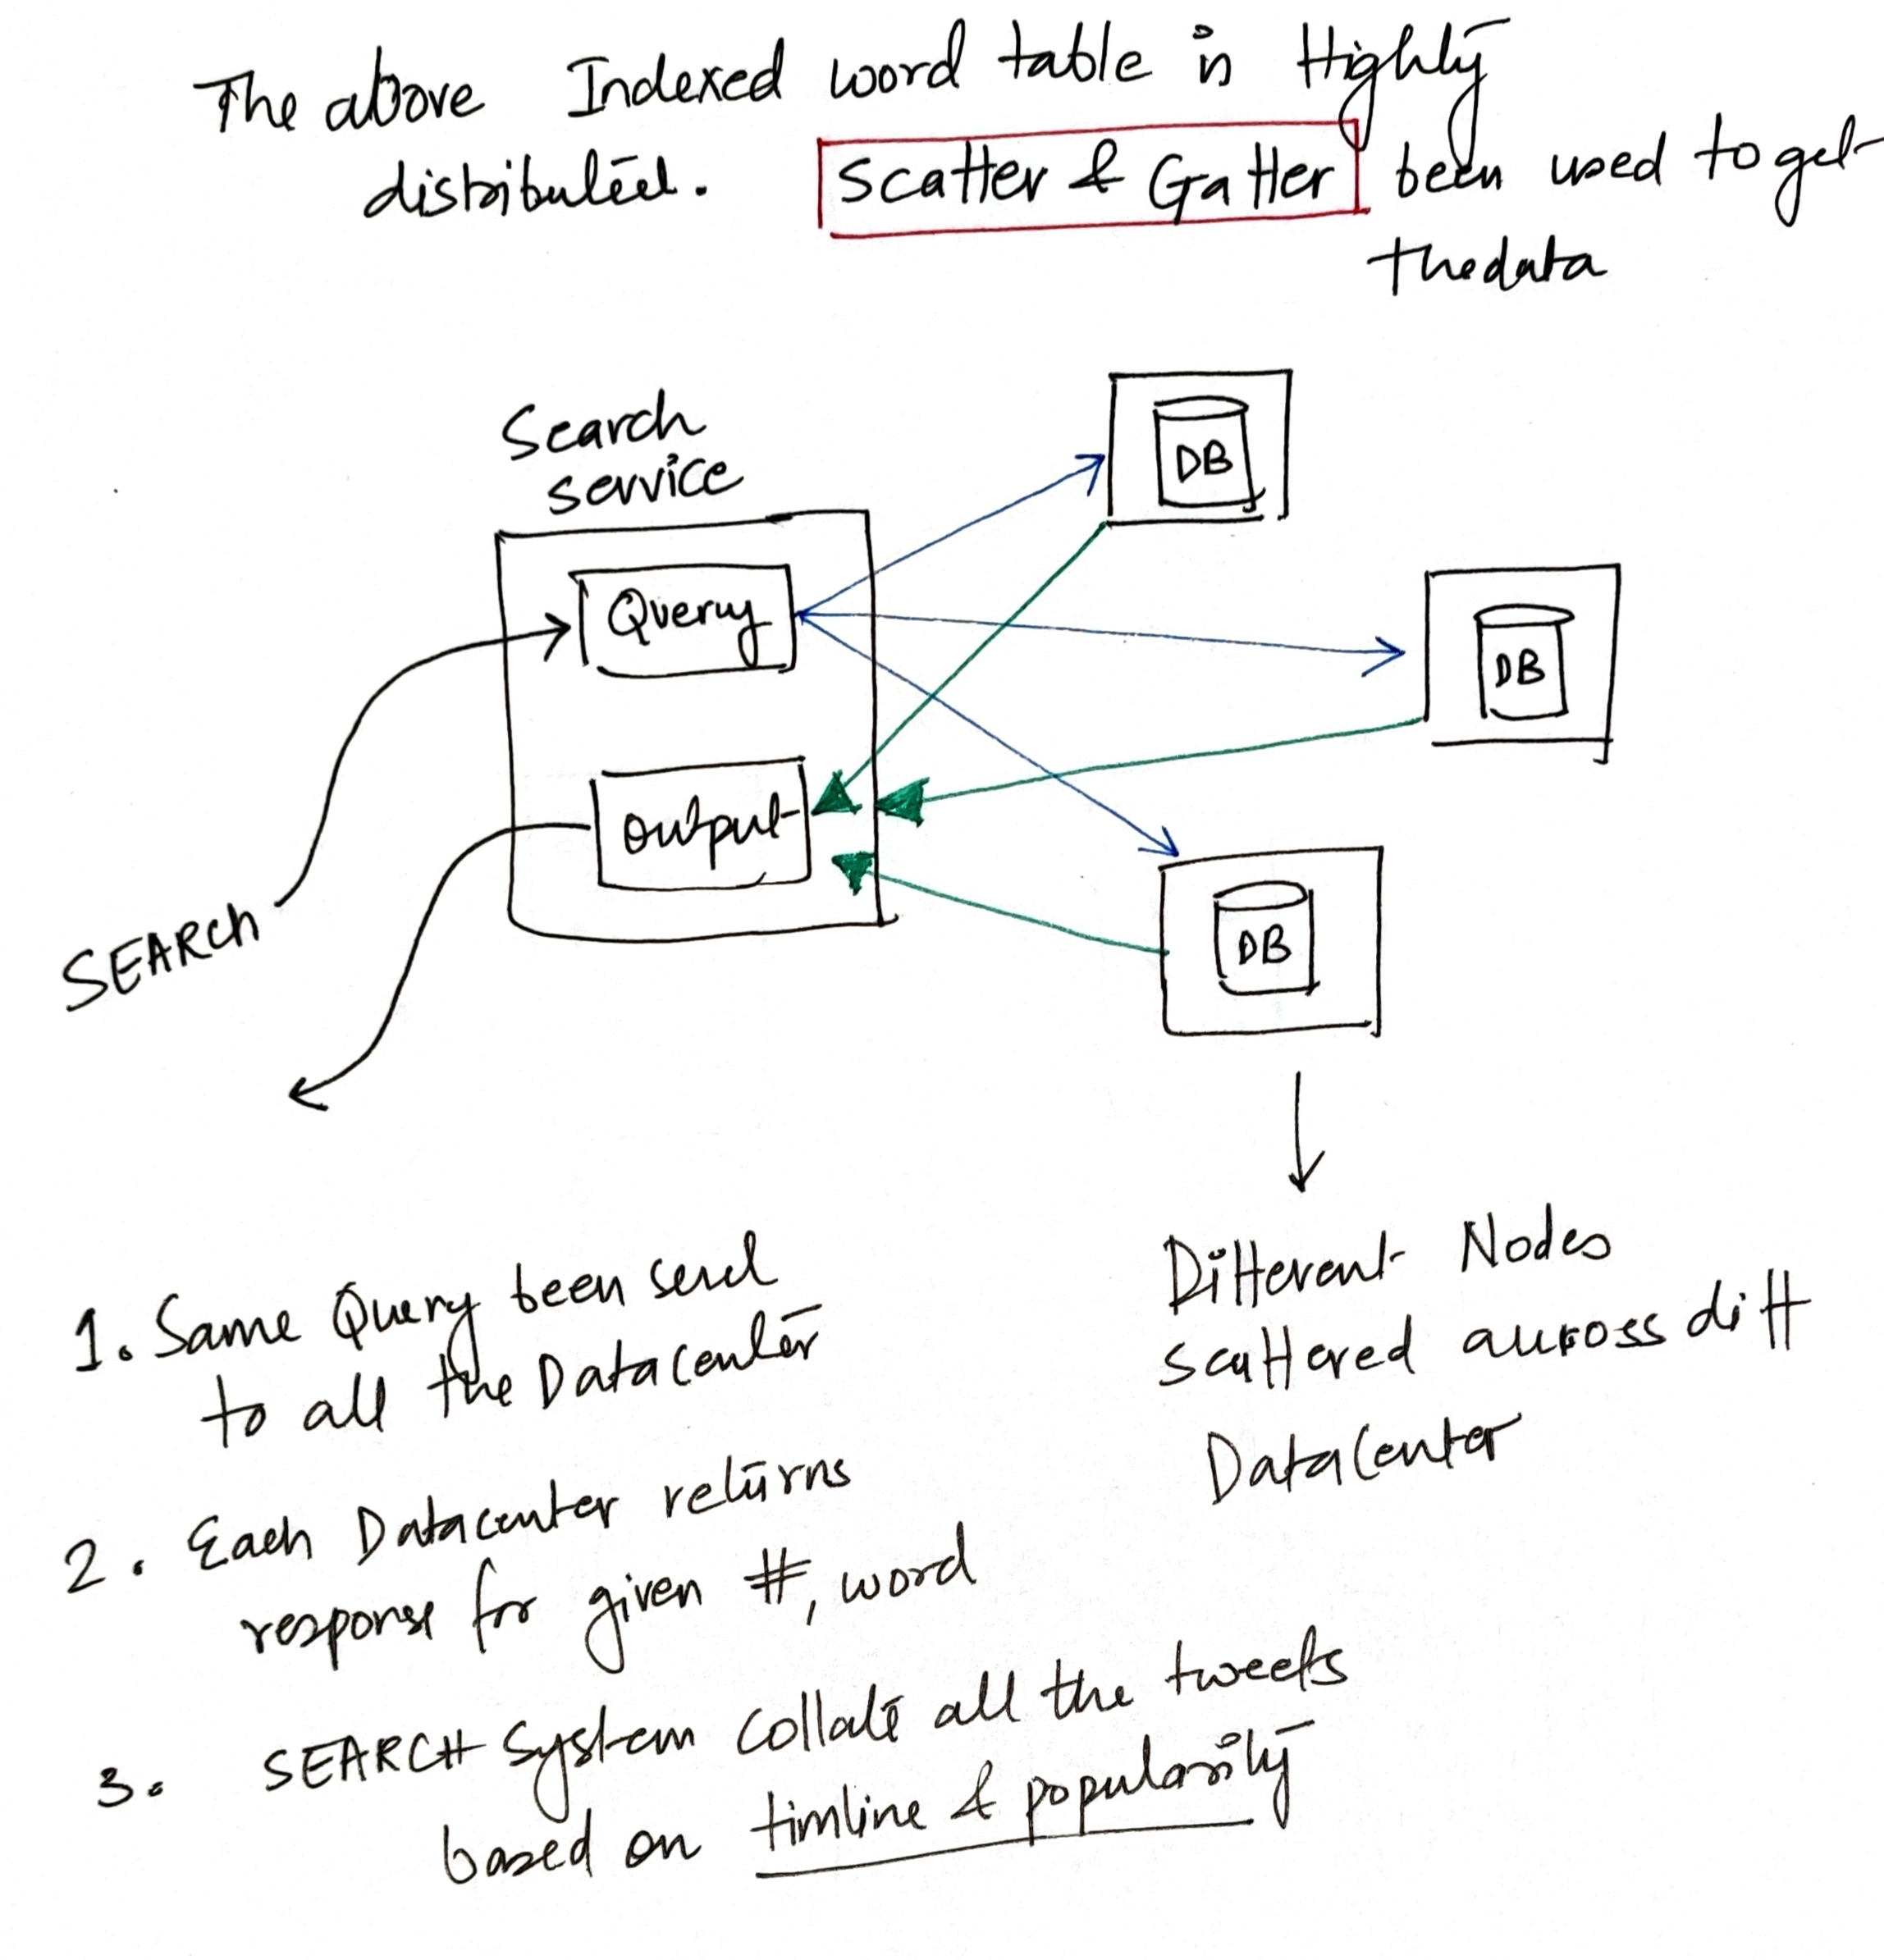 The above Indexed word table is Highly
distributed. Scatter & Gatter been used to get
the data
Search
service
DB
Query
DB
output
DB
SEARCH
Different Nodes
scattered auross diff
DataCenter
1. Same Query been send
to all the DataCenter
2. Each Datacenter returns
response for given #, word
3. SEARCH System Collate all the tweets
based on timline & popularity